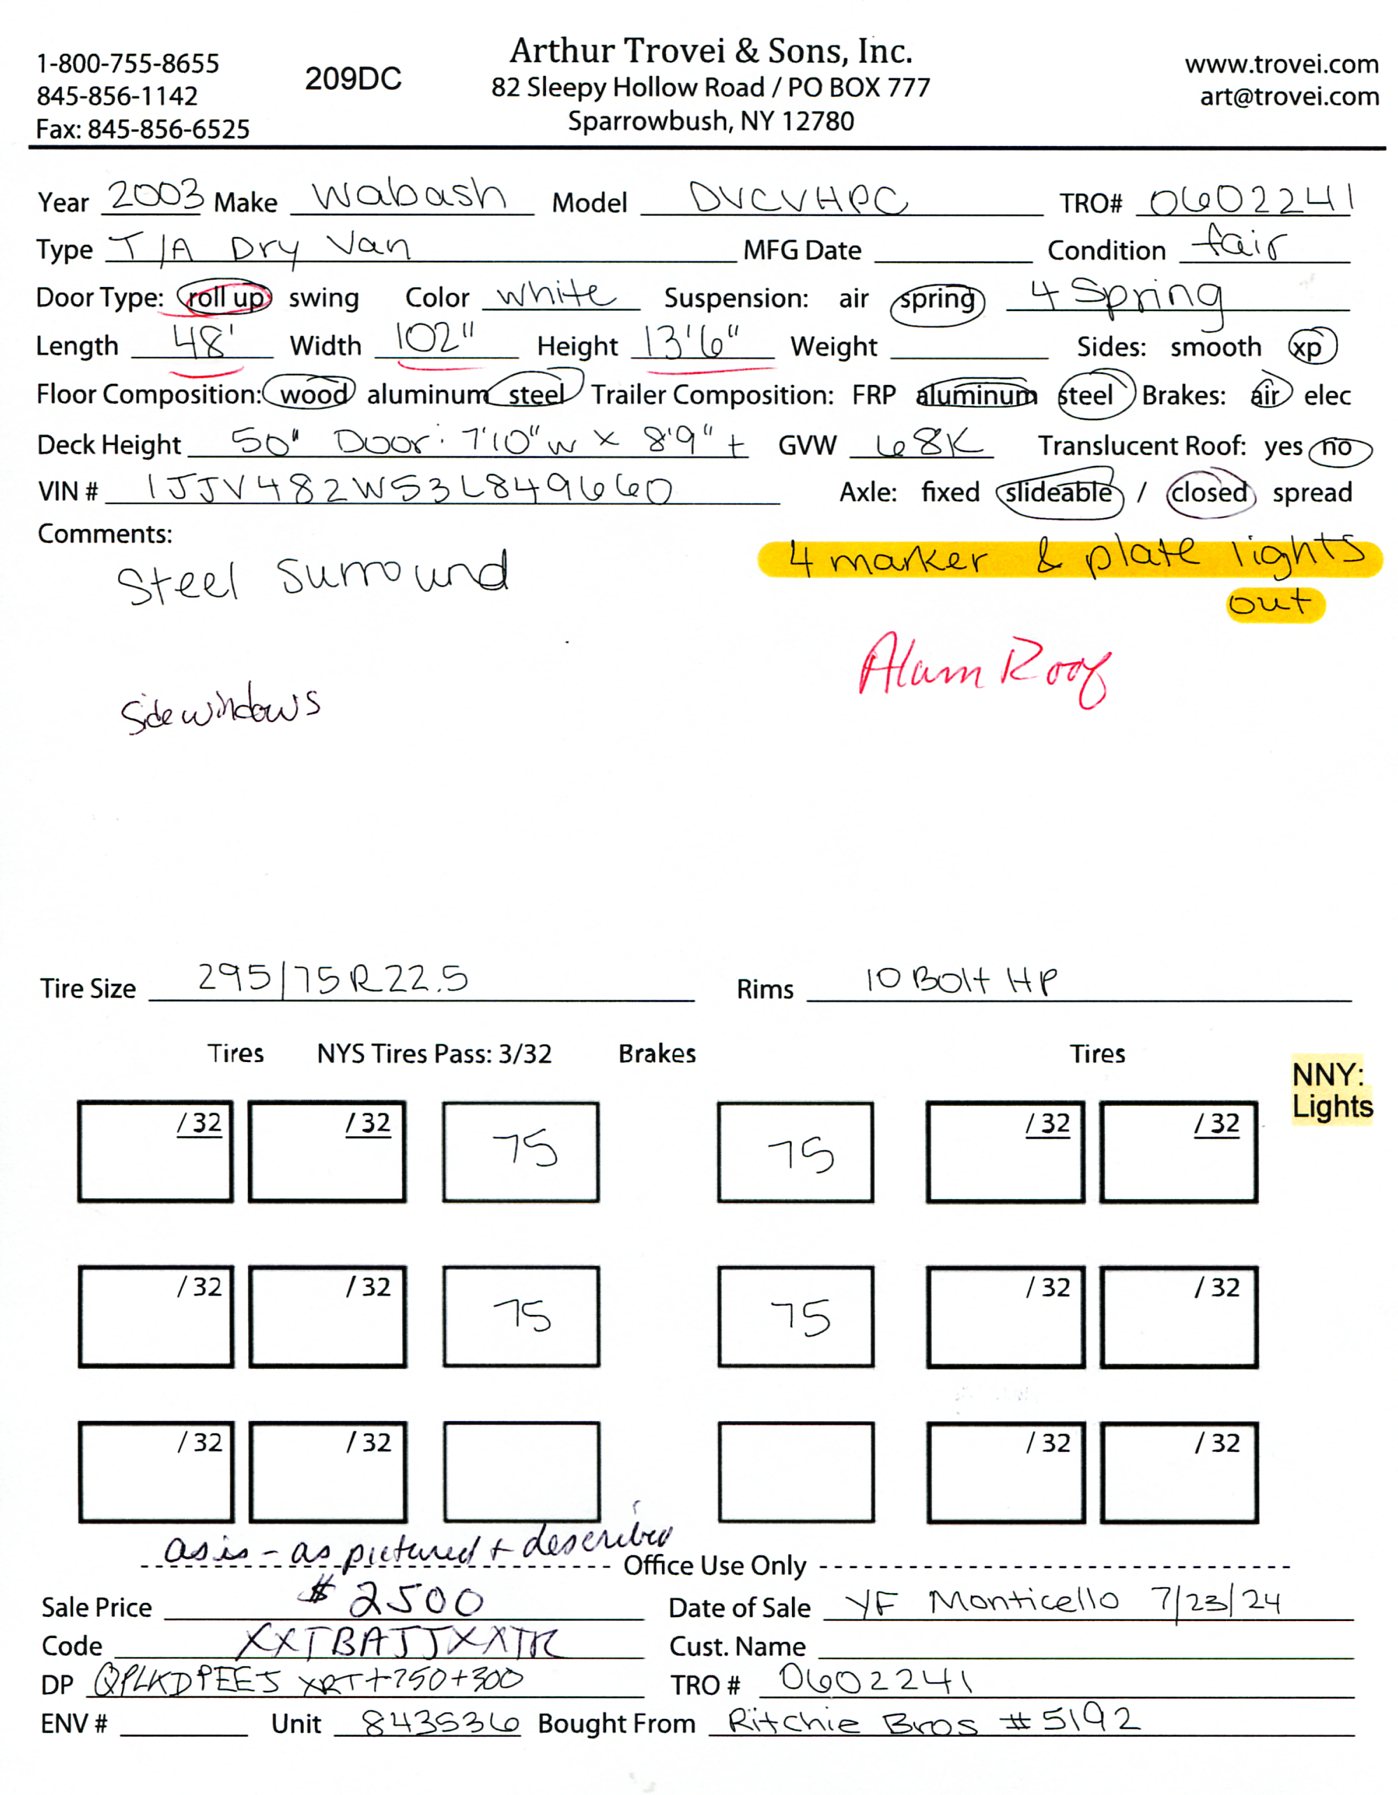 1-800-755-8655
845-856-1142
Fax: 845-856-6525
209DC
Arthur Trovei & Sons, Inc.
82 Sleepy Hollow Road / PO BOX 777
Sparrowbush, NY 12780
www.trovei.com
art@trovei.com
Year 2003 Make Wabash Model DVCVHPC TRO# 0602241
Type T/A Dry Van MFG Date Condition fair
Door Type: roll up swing Color white Suspension: air spring 4 Spring
Length 48' Width 102" Height 13'6" Weight Sides: smooth xp
Floor Composition: wood aluminum steel Trailer Composition: FRP aluminum steel Brakes: air elec
Deck Height 50" Door: 7'10"w x 8'9" t GVW 68K Translucent Roof: yes no
VIN # 1JJV482W53L849660 Axle: fixed slideable / closed spread
Comments:
Steel Surround
4 marker & plate lights
out
Alum Roof
Side windows
Tire Size 295/75R22.5 Rims 10 Bolt HP
Tires NYS Tires Pass: 3/32 Brakes Tires
NNY:
Lights
/32 /32 75 75 /32 /32
/32 /32 75 75 /32 /32
/32 /32 /32 /32
as is - as pictured + described
Office Use Only
Sale Price $2500 Date of Sale YF Monticello 7/23/24
Code XXTBAJJXXTR Cust. Name
DP QPLKDPEEJ XRT+750+300 TRO # 0602241
ENV # Unit 843536 Bought From Ritchie Bros #5192